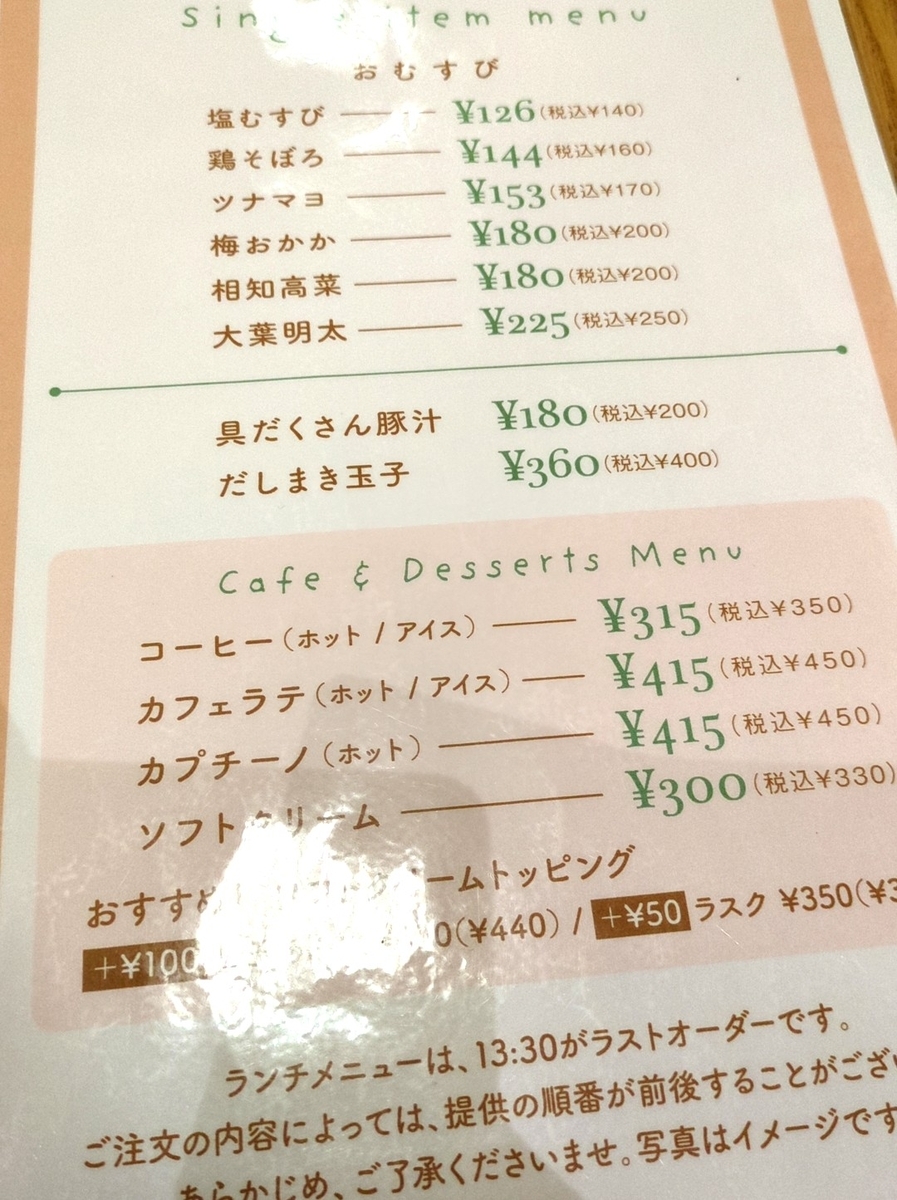 Sin tem menu
おむすび
塩むすび ¥126(税込¥140)
鶏そぼろ ¥144(税込¥160)
ツナマヨ ¥153(税込¥170)
梅おかか ¥180(税込¥200)
相知高菜 ¥180(税込¥200)
大葉明太 ¥225(税込¥250)
具だくさん豚汁 ¥180(税込¥200)
だしまき玉子 ¥360(税込¥400)
Cafe & Desserts Menu
コーヒー(ホット / アイス) ¥315(税込¥350)
カフェラテ(ホット / アイス) ¥415(税込¥450)
カプチーノ(ホット) ¥415(税込¥450)
ソフトクリーム ¥300(税込¥330)
おすすめ ームトッピング
+¥100 0(¥440) / +¥50 ラスク ¥350(¥3
ランチメニューは、13:30がラストオーダーです。
ご注文の内容によっては、提供の順番が前後することがござい
あらかじめ、ご了承くださいませ。写真はイメージです